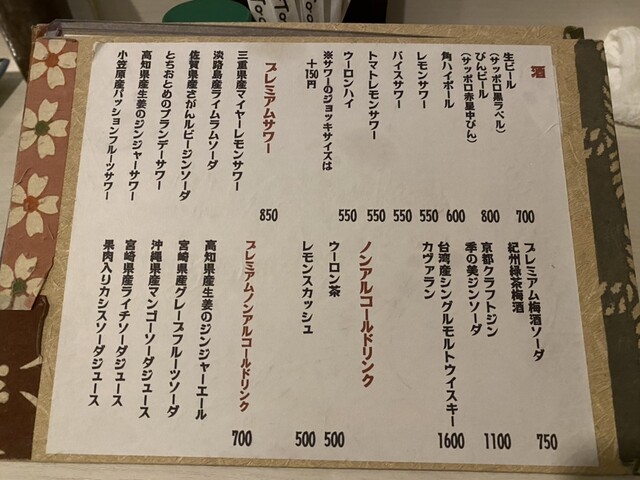 酒
生ビール 700
(サッポロ黒ラベル)
びんビール 800
(サッポロ赤星中びん)
角ハイボール 600
レモンサワー 550
バイスサワー 550
トマトレモンサワー 550
ウーロンハイ 550
※サワーのジョッキサイズは
+150円
プレミアムサワー 850
三重県産マイヤーレモンサワー
淡路島産ライムラムソーダ
佐賀県産さがんルビージンソーダ
とちおとめのブランデーサワー
高知県産生姜のジンジャーサワー
小笠原産パッションフルーツサワー
プレミアム梅酒ソーダ 750
紀州緑茶梅酒
京都クラフトジン 1100
季の美ジンソーダ
台湾産シングルモルトウイスキー 1600
カヴァラン
ノンアルコールドリンク
ウーロン茶 500
レモンスカッシュ 500
プレミアムノンアルコールドリンク 700
高知県産生姜のジンジャーエール
宮崎県産グレープフルーツソーダ
沖縄県産マンゴーソーダジュース
宮崎県産ライチソーダジュース
果肉入りカシスソーダジュース